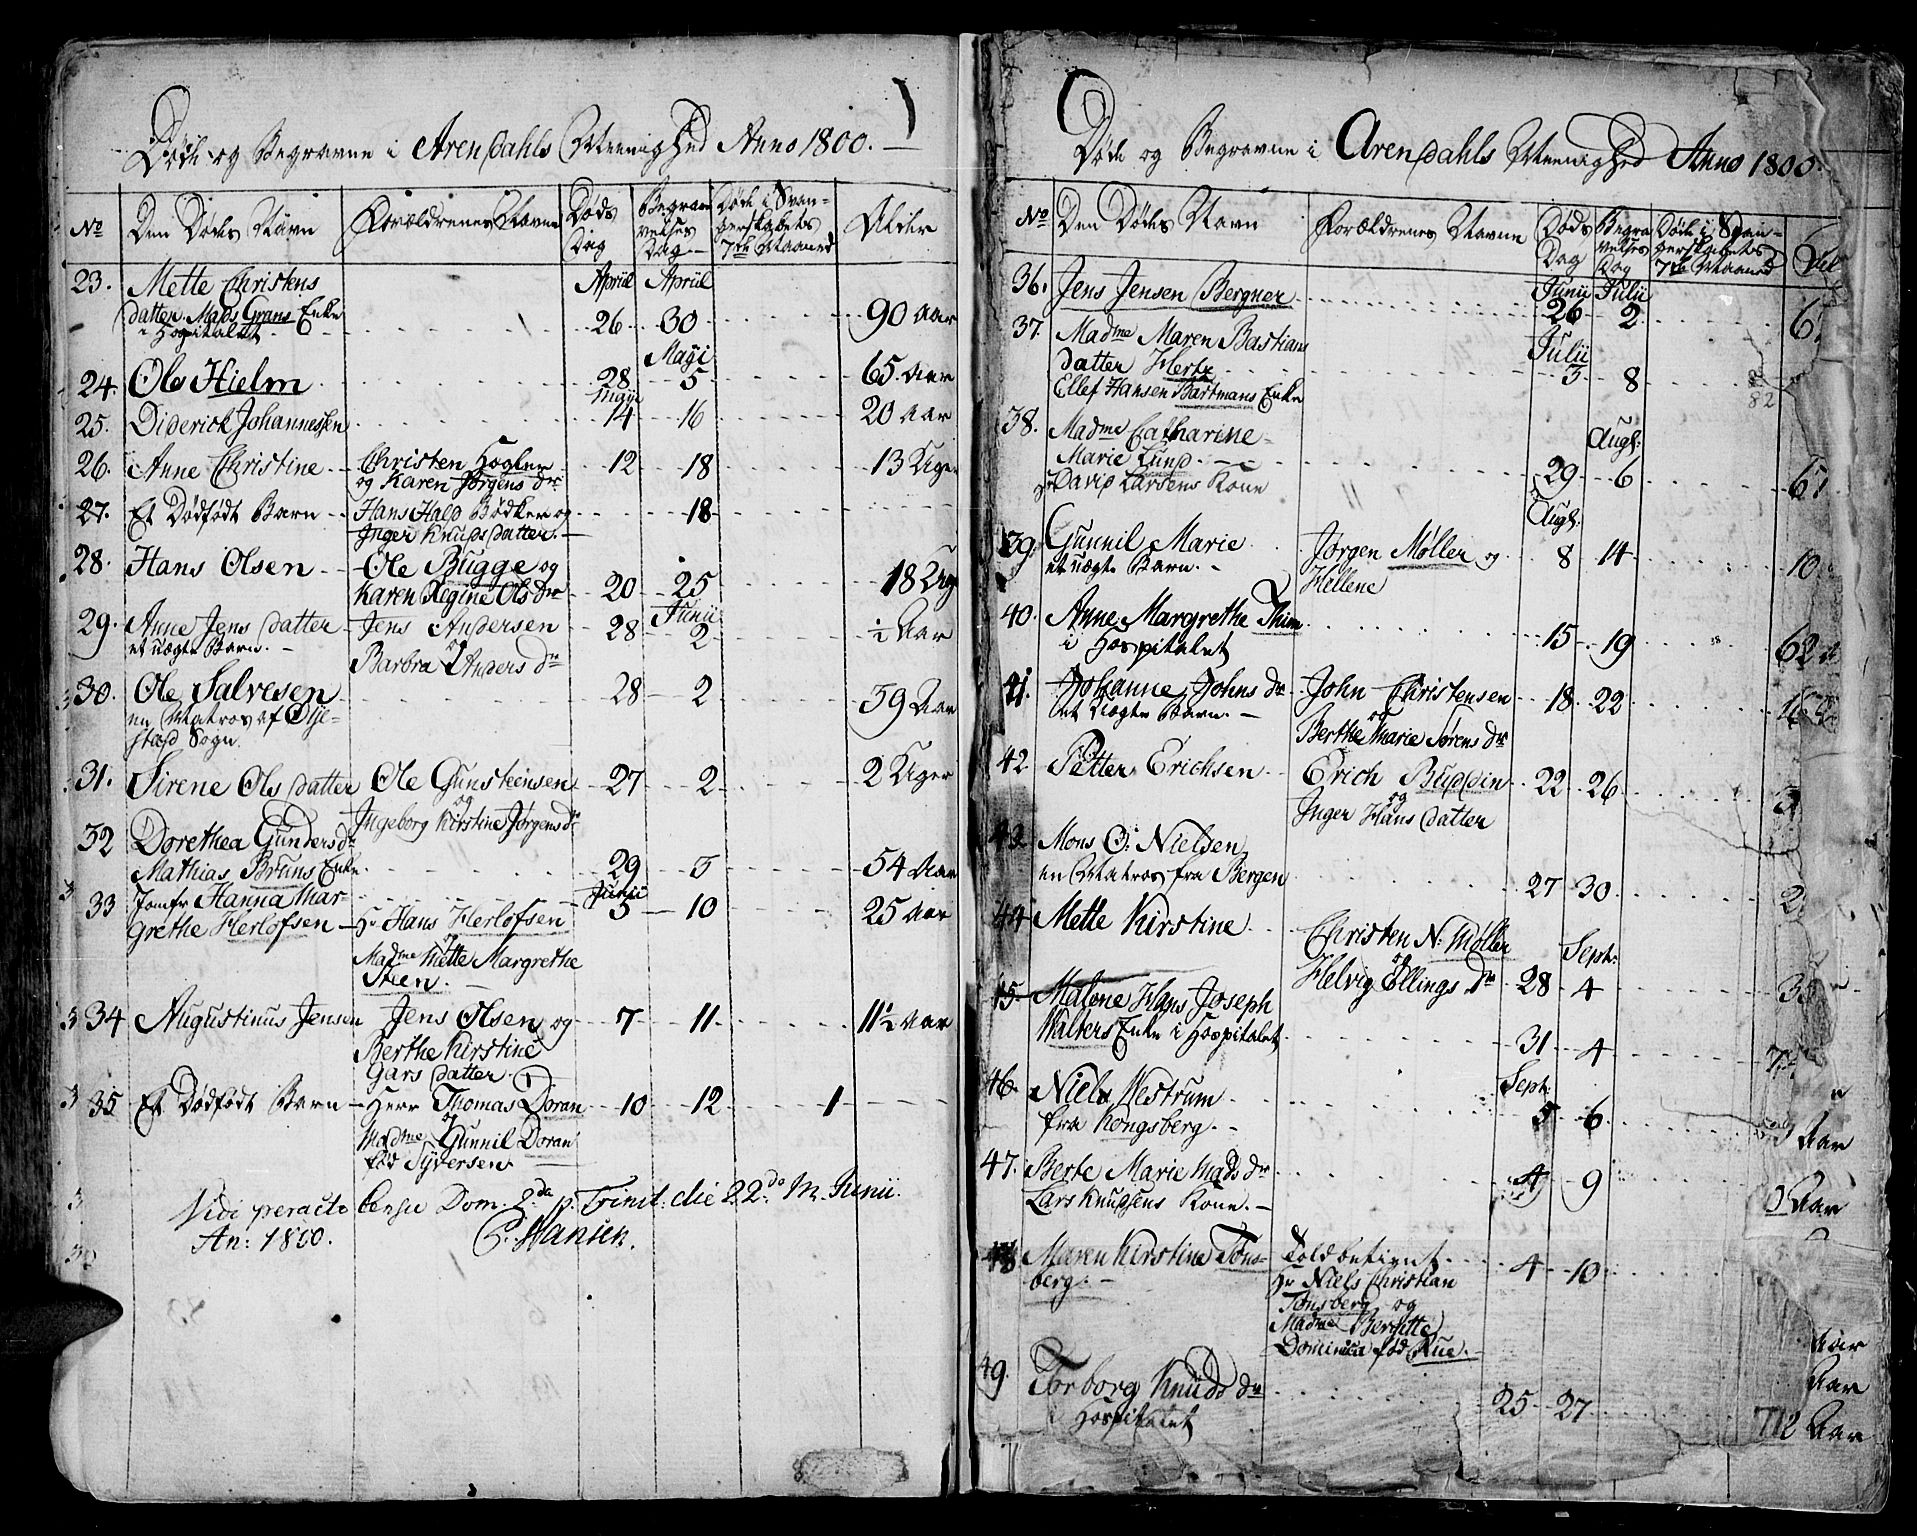 Døde og Begravne i Arendahls Meenighed Anno 1800.
No Den Dødes Navn Forældrenes Navne Døds Dag Begravelses Dag Døde i Svangerskabets 7de Maaned Alder
23. Mette Christens April April
datter. Mads Grans Enke 26 30 90 Aar
i Hospitalet
Maji
24. Ole Hielm 28 5 65. Aar
Maji
25. Diderick Johannessen 14 16 20 Aar
26. Anne Christine Christen Hogler 12 18 13 Uger
og Karen Jørgens dr
27. Et Dødfødt Barn Hans Hald Bødker og 18
Inger Knudsdatter.
28. Hans Olsen Ole Bugge og
Karen Regine Ols dr 20 25 18 Ug
Junii
29. Anne Jens datter Jens Andersen 28 2 ½ Aar
et uægte Barn. og
Barbra Anders dr
30. Ole Salvesen 28 2 59 Aar
en Matros af Øije-
stad Sogn.
31. Sirene Ols datter Ole Gunsteensen 27 2 2 Uger
og
Ingeborg Kirstine Jørgens dr
32 Dorethea Gunders dr
Mathias Bruns Enke 29 5 54 Aar
Junii
33 Jomfr Hanna Mar- 5 10 25 Aar
grethe Herlofsen Hr Hans Herlofsen
og
Madme Mette Margrethe
Steen.
34 Augustinus Jensen Jens Olsen og 7 11 11½ Aar
Berthe Kirstine
Gars datter
35 Et Dødfødt Barn Herr Thomas Doran 10 12 1
og
Madme Gunnil Doran
fød Syversen
Vidi peracto censu Dom. 2da p. Trinit: die 22do M. Junii.
An: 1800. P. Hansen.
Døde og Begravne i Arendahls Meenighed Anno 1800.
No Den Dødes Navn Forældrenes Navne Døds Dag Begravelses Dag Døde i Svangerskabets 7de Maaned
Junii Julii
36. Jens Jensen Bergner 26 2 6
37. Madme Maren Bastians Julii
datter Hertz 3 8
Ellef Hansen Bartmans Enke 82
38. Madme Catharine Augs.
Marie Lund. 29 6
Hr David Larsens Kone
Augs.
39. Gunnil Marie Jørgen Møller og 8 14 10
et uægte Barn. Hellene
40. Anne Margrethe Thim
i Hospitalet 15 19 62
41. Johanne Johns dr John Christensen 18 22
et Uægte Barn. og
Berthe Marie Sørens dr
42 Petter Erichsen Erich Buddin 22 26
og
Inger Hans datter
43. Mons O: Nielsen
en Matros fra Bergen 27 30 2
44 Mette Kirstine Christen N. Møller Septr.
og
Helvig Ellings dr 28 4
45. Malene Hans Joseph
Walters Enke i Hospitalet 31 4 7
Septr.
46. Niels Vestrum
fra Kongsberg. 5 6 Aar
47. Berte Marie Mads dr 4 9
Lars Knudsens Kone. Aar
48 Maren Kirstine Tøns- Toldbetient 4 10
berg. Hr Niels Christian
Tønsberg og
Madme Bergitte
fød Rue. Aar
49. Torborg Knuds dr 25 27 Aar
i Hospitalet 72 Aar